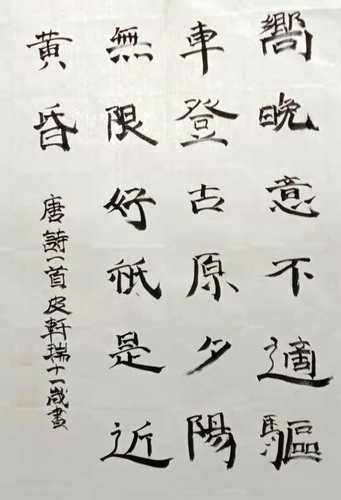 嚮晚意不適驅
車登古原夕陽
無限好祇是近
黃昏
唐詩一首皮軒瑞十一歲書